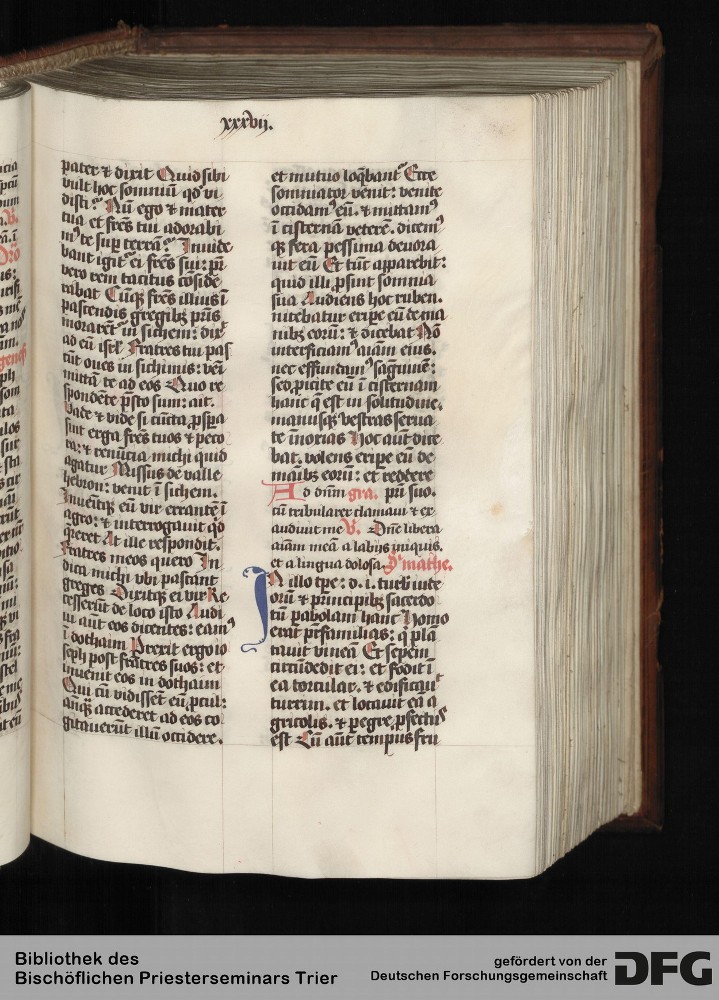 xxxvij.
pater ⁊ dixit Quid sibi
vult hoc somniū qd̓ vi
disti? Nū ego ⁊ mater
tua et frēs tui adorabi
mᷣ te suꝑ terrā? Inuide
bant igit᷑ ei frēs sui: pr̄
vero rem tacitus cōside
rabat Cūqꝫ frēs illius ī
pastendis gregibꝫ pr̄is
morarent᷑ in sichem: dix̄
ad eū isrl̓ Fratres tui pas
cūt oues in sichimis: veni
mittā te ad eos Quo re
spondēte p̄sto sum: ait.
Vade ⁊ vide si cūcta ꝓspa
sint erga frēs tuos ⁊ peco
ra: ⁊ renūcia michi quid
agatur Missus de valle
hebron: venit ī sichem.
Inuenitqꝫ eū vir errantē ī
agro: ⁊ interrogauit qd̓
q̄reret At ille respondit.
Fratres meos quero In
dica michi vbi pascant
greges Dixitqꝫ ei vir Re
cesserūt de loco isto Audi
ui aūt eos dicentes: eamꝰ
ī dothaim Perrexit ergo io
seph post frātres suos: et
inuenit eos in dothaim
Qui cū vidissēt eū ꝓcul:
anq̄ accederet ad eos co
gitauerūt illū occidere.
et mutuo loq̄bant᷑ Ecce
somniator venit: venite
occidamꝰ eū. ⁊ mittamꝰ
ī cisternā veterē. dicemꝰ
qꝫ fera pessima deuora
uit eū Et tūc apparebit:
quid illi ꝓsint somnia
sua Audiens hoc ruben.
nitebatur eripe eū de ma
nibꝫ eorū: ⁊ dicebat Nō
interficiamꝰ aīam eius.
nec effundamꝰ sāguinē:
sed ꝓicite eū ī cisternam
hanc q̄ est in solitudine.
manusqꝫ vestras serua
te īnoxias Hoc aūt dice
bat. volens eripe eū de
manibꝫ eorū: et reddere
Ad dn̄m gra. pr̄i suo.
cū tribularer clamaui ⁊ ex
audiuit me V. Dn̄e libera
aīam meā a labijs iniquis.
et a lingua dolosa. Sᷣ mathe.
In illo tpe: d. i. turb̓ iude
orū ⁊ principibꝫ sacerdo
tū pabolam hanc Homo
erat pr̄familias: q̓ pla
tauit vineā Et sepem
circūdedit ei: et fodit ī
ea torcular. ⁊ edificauit
turrim. et locauit eā a
gricolis. ⁊ pegre ꝓfectus
est Cū aūt tempus fru
Bibliothek des
Bischöflichen Priesterseminars Trier
gefördert von der
Deutschen Forschungsgemeinschaft DFG